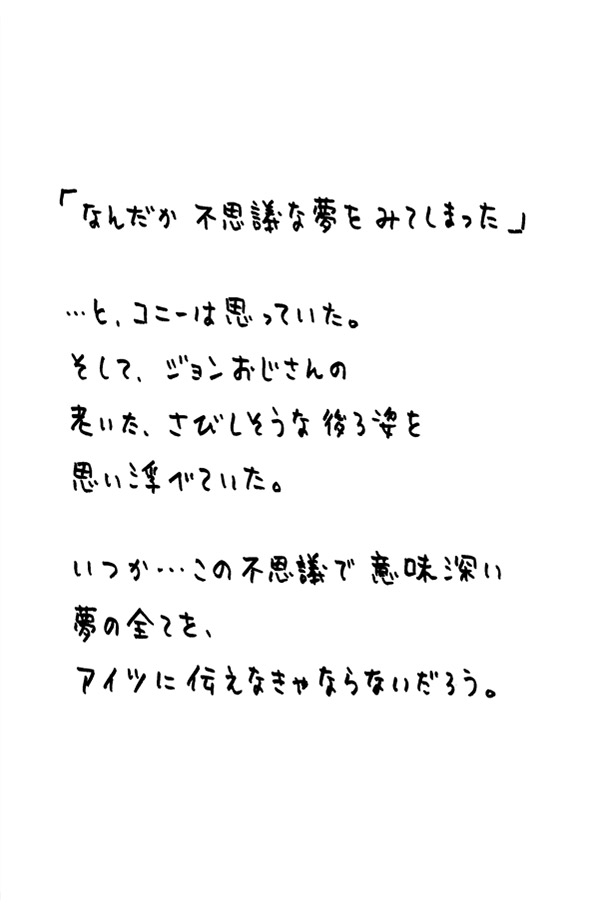 「なんだか 不思議な夢を みてしまった」
…と、コニーは思っていた。
そして、ジョンおじさんの
老いた、さびしそうな後ろ姿を
思い浮べていた。
いつか…この不思議で 意味深い
夢の全てを、
アイツに伝えなきゃならないだろう。